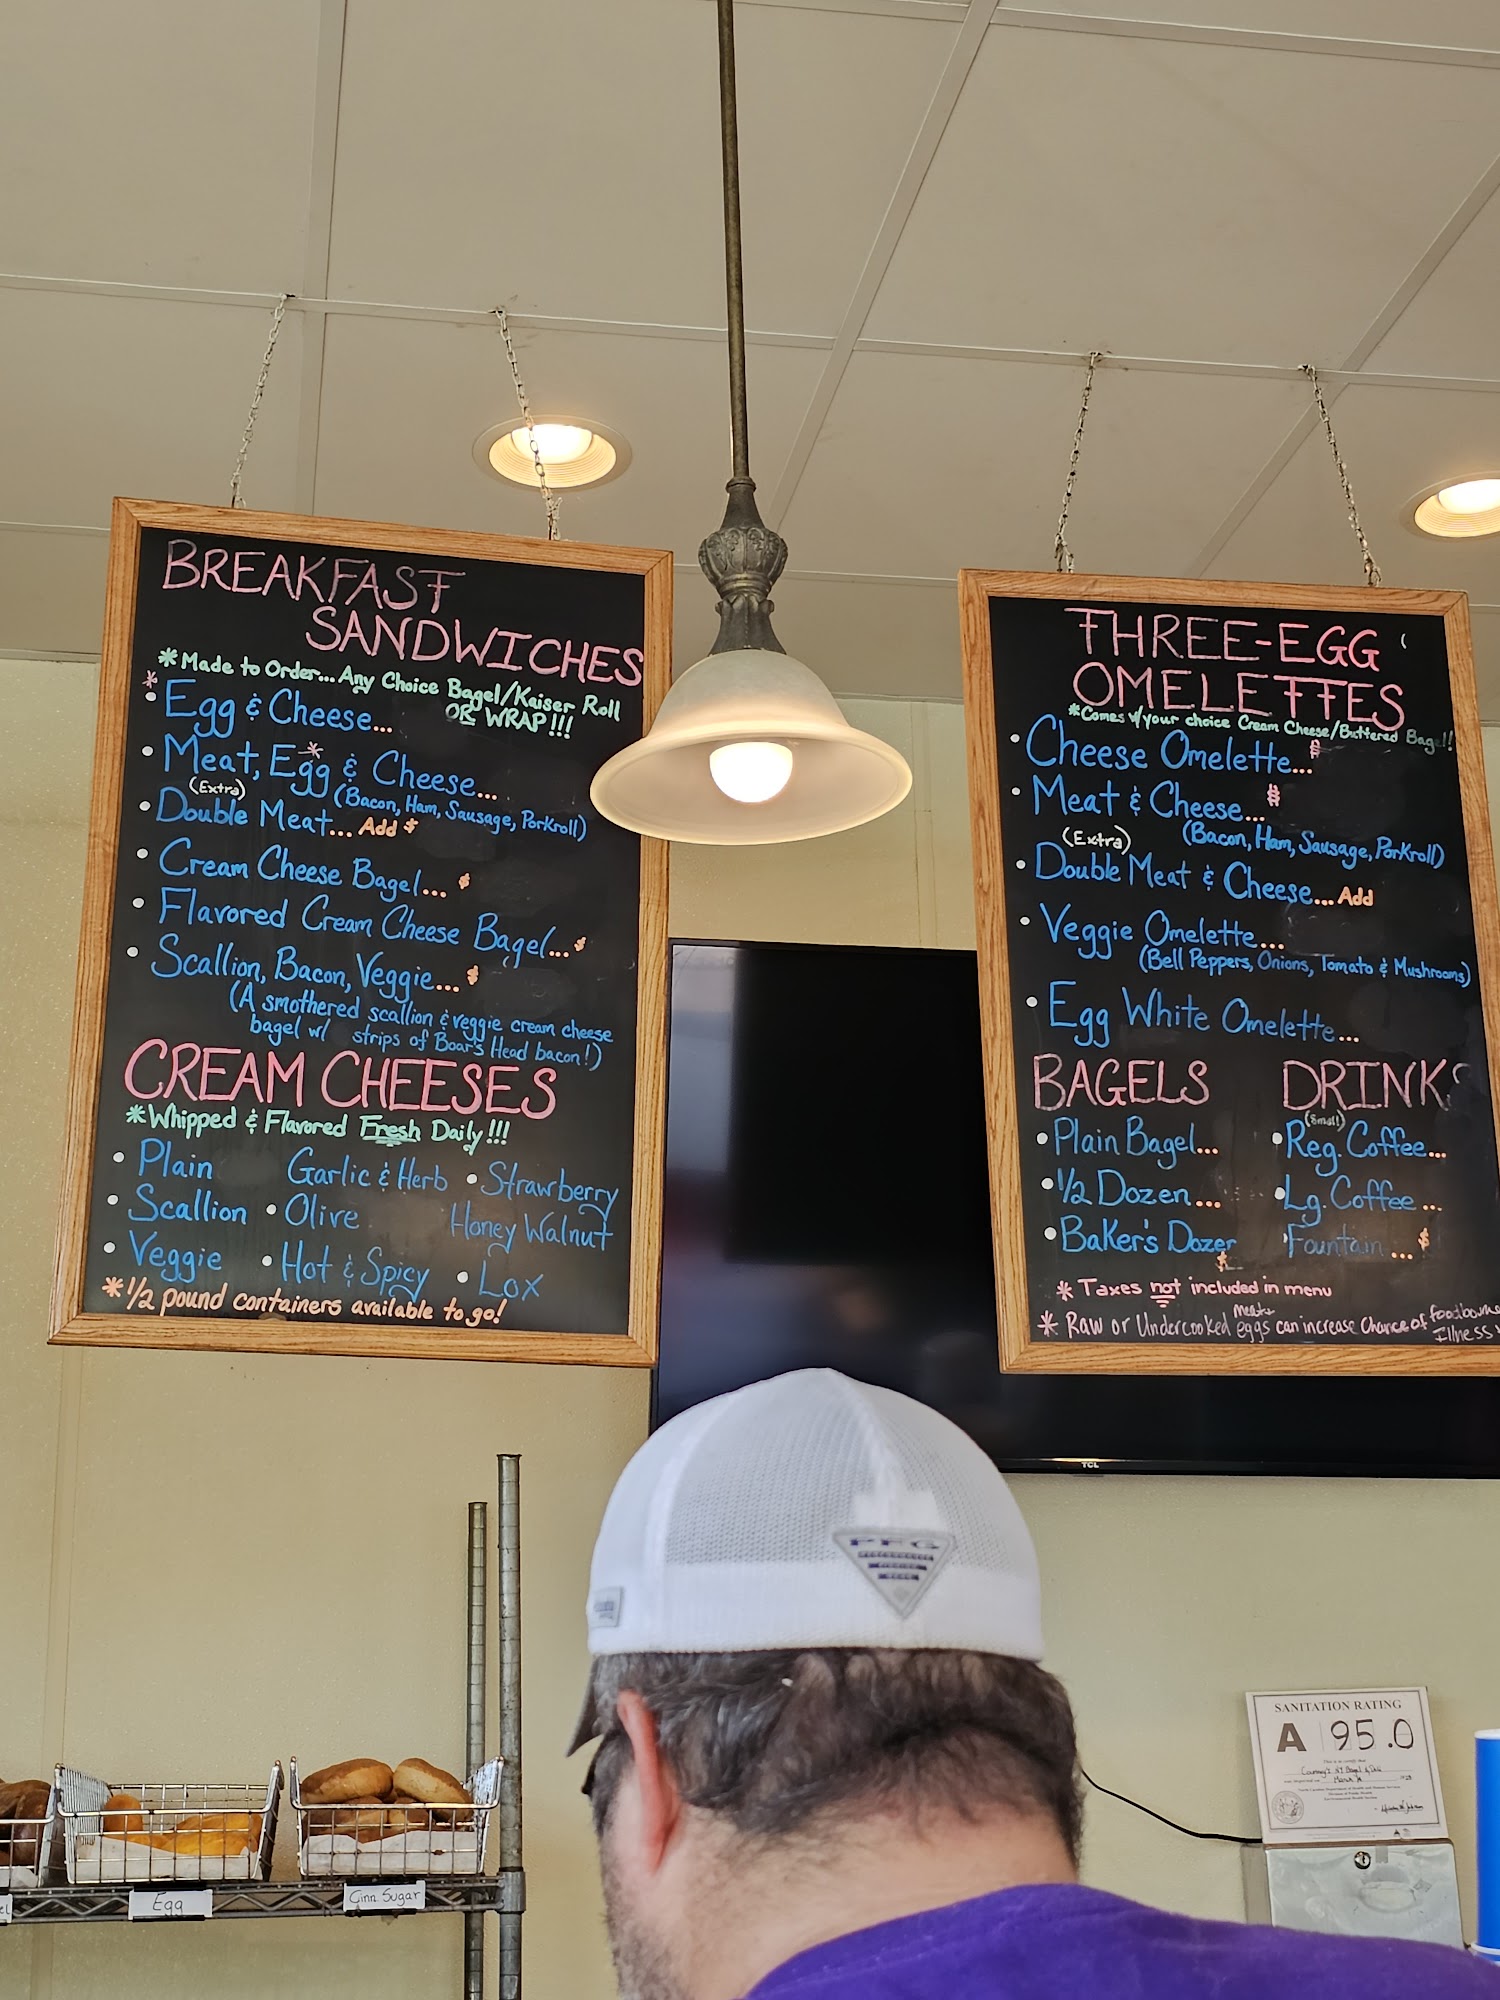 BREAKFAST
SANDWICHES
*Made to Order... Any Choice Bagel/Kaiser Roll
OR WRAP!!!
* • Egg & Cheese...
• Meat, Egg* & Cheese...
(Bacon, Ham, Sausage, Porkroll)
(Extra)
• Double Meat... Add $
• Cream Cheese Bagel... $
• Flavored Cream Cheese Bagel... $
• Scallion, Bacon, Veggie... $
(A smothered scallion & veggie cream cheese
bagel w/ strips of Boar's Head bacon!)
CREAM CHEESES
*Whipped & Flavored Fresh Daily!!!
• Plain Garlic & Herb • Strawberry
• Scallion • Olive Honey Walnut
• Veggie • Hot & Spicy • Lox
*1/2 pound containers available to go!
THREE-EGG
OMELETTES
*Comes w/your choice Cream Cheese/Buttered Bagel!!
• Cheese Omelette...
• Meat & Cheese...
(Bacon, Ham, Sausage, Porkroll)
(Extra)
• Double Meat & Cheese... Add
• Veggie Omelette....
(Bell Peppers, Onions, Tomato & Mushrooms)
• Egg White Omelette...
BAGELS
• Plain Bagel...
• 1/2 Dozen...
• Baker's Dozen
$
DRINKS
(Small)
• Reg. Coffee...
• Lg. Coffee...
• Fountain... $
* Taxes not included in menu
* Raw or Undercooked meats eggs can increase chance of foodbourne
Illness
TCL
PFG
PERFORMANCE
FISHING
GEAR
SANITATION RATING
A 95.0
Egg
Cinn Sugar